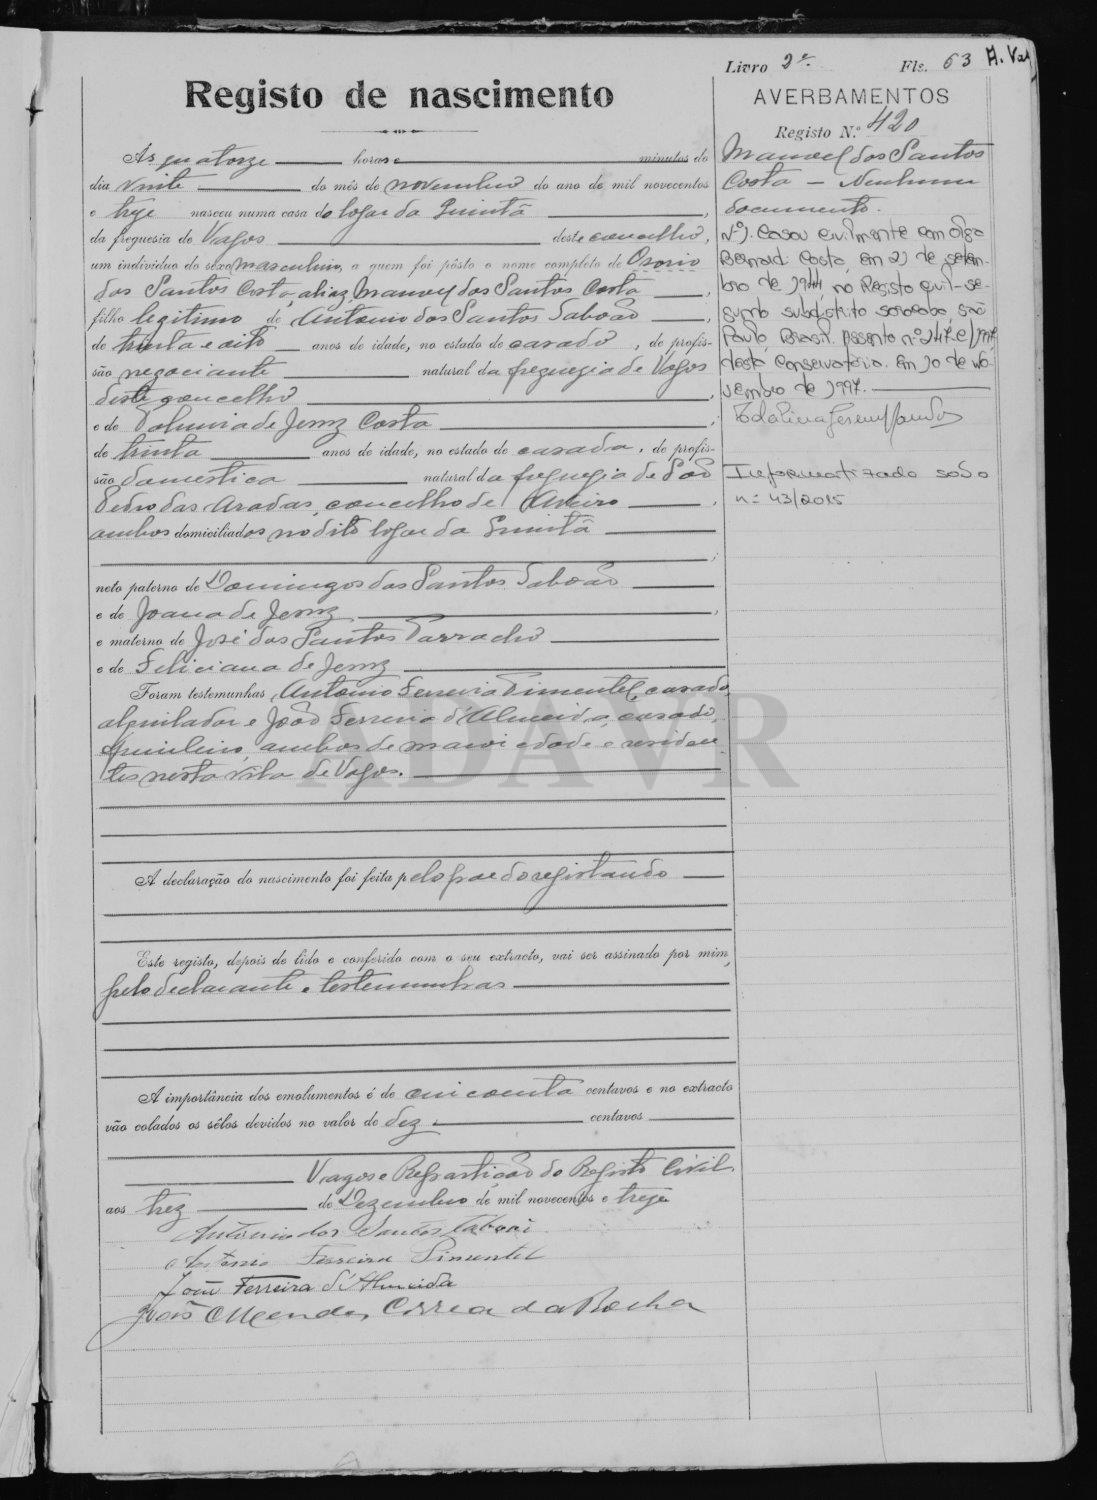 Livro 2º. Fls. 63 A. Val
Registo de nascimento
AVERBAMENTOS
Registo N.º 420
Manoel dos Santos
Costa — Nenhum
documento.
Nº 1. Casou civilmente com Olga
Bernardi Costa, em 21 de setem-
bro de 1944, no Registo civil - se-
gundo subdistrito sorocaba, São
Paulo, Brasil. Assento nº 247-C/1997
desta Conservatória. Em 10 de No-
vembro de 1997.
Informatizado sob o
n.º 43/2015
Ás quatorze horas e minutos do
dia vinte do mês de novembro do ano de mil novecentos
e treze nasceu numa casa do logar da Quintã,
da freguesia de Vagos deste concelho,
um individuo do sexo masculino, a quem foi pôsto o nome completo de Osorio
dos Santos Costa, aliaz, Manoel dos Santos Costa,
filho legitimo de Antonio dos Santos Saboão,
de trinta e oito anos de idade, no estado de casado, de profis-
são negociante natural da freguezia de Vagos
deste concelho,
e de de Jezuz Costa
de trinta anos de idade, no estado de casada, de profis-
são domestica natural da freguezia de São
Pedro das Aradas, concelho de Aveiro,
ambos domiciliados no dito logar da Quintã
neto paterno de Domingos dos Santos Saboão
e de Joana de Jezuz,
e materno de José dos Santos Parracho
e de Feliciana de Jezuz
Foram testemunhas, Antonio Ferreira Pimentel, casado,
alquilador e João Ferreira d'Almeida, casado,
ambos de maior edade e residen-
tes nesta vila de Vagos.
ADAVR
A declaração do nascimento foi feita pelo pae do registando
Este registo, depois de lido e conferido com o seu extracto, vai ser assinado por mim,
pelo declarante e testemunhas
A importância dos emolumentos é de cincoenta centavos e no extracto
vão colados os sêlos devidos no valor de dez centavos
Vagos e Repartição do Registo Civil
aos trez de Dezembro de mil novecentos e treze
Antonio dos Santos Saboão
Antonio Ferreira Pimentel
João Ferreira d'Almeida
João Mendes Correa da Rocha